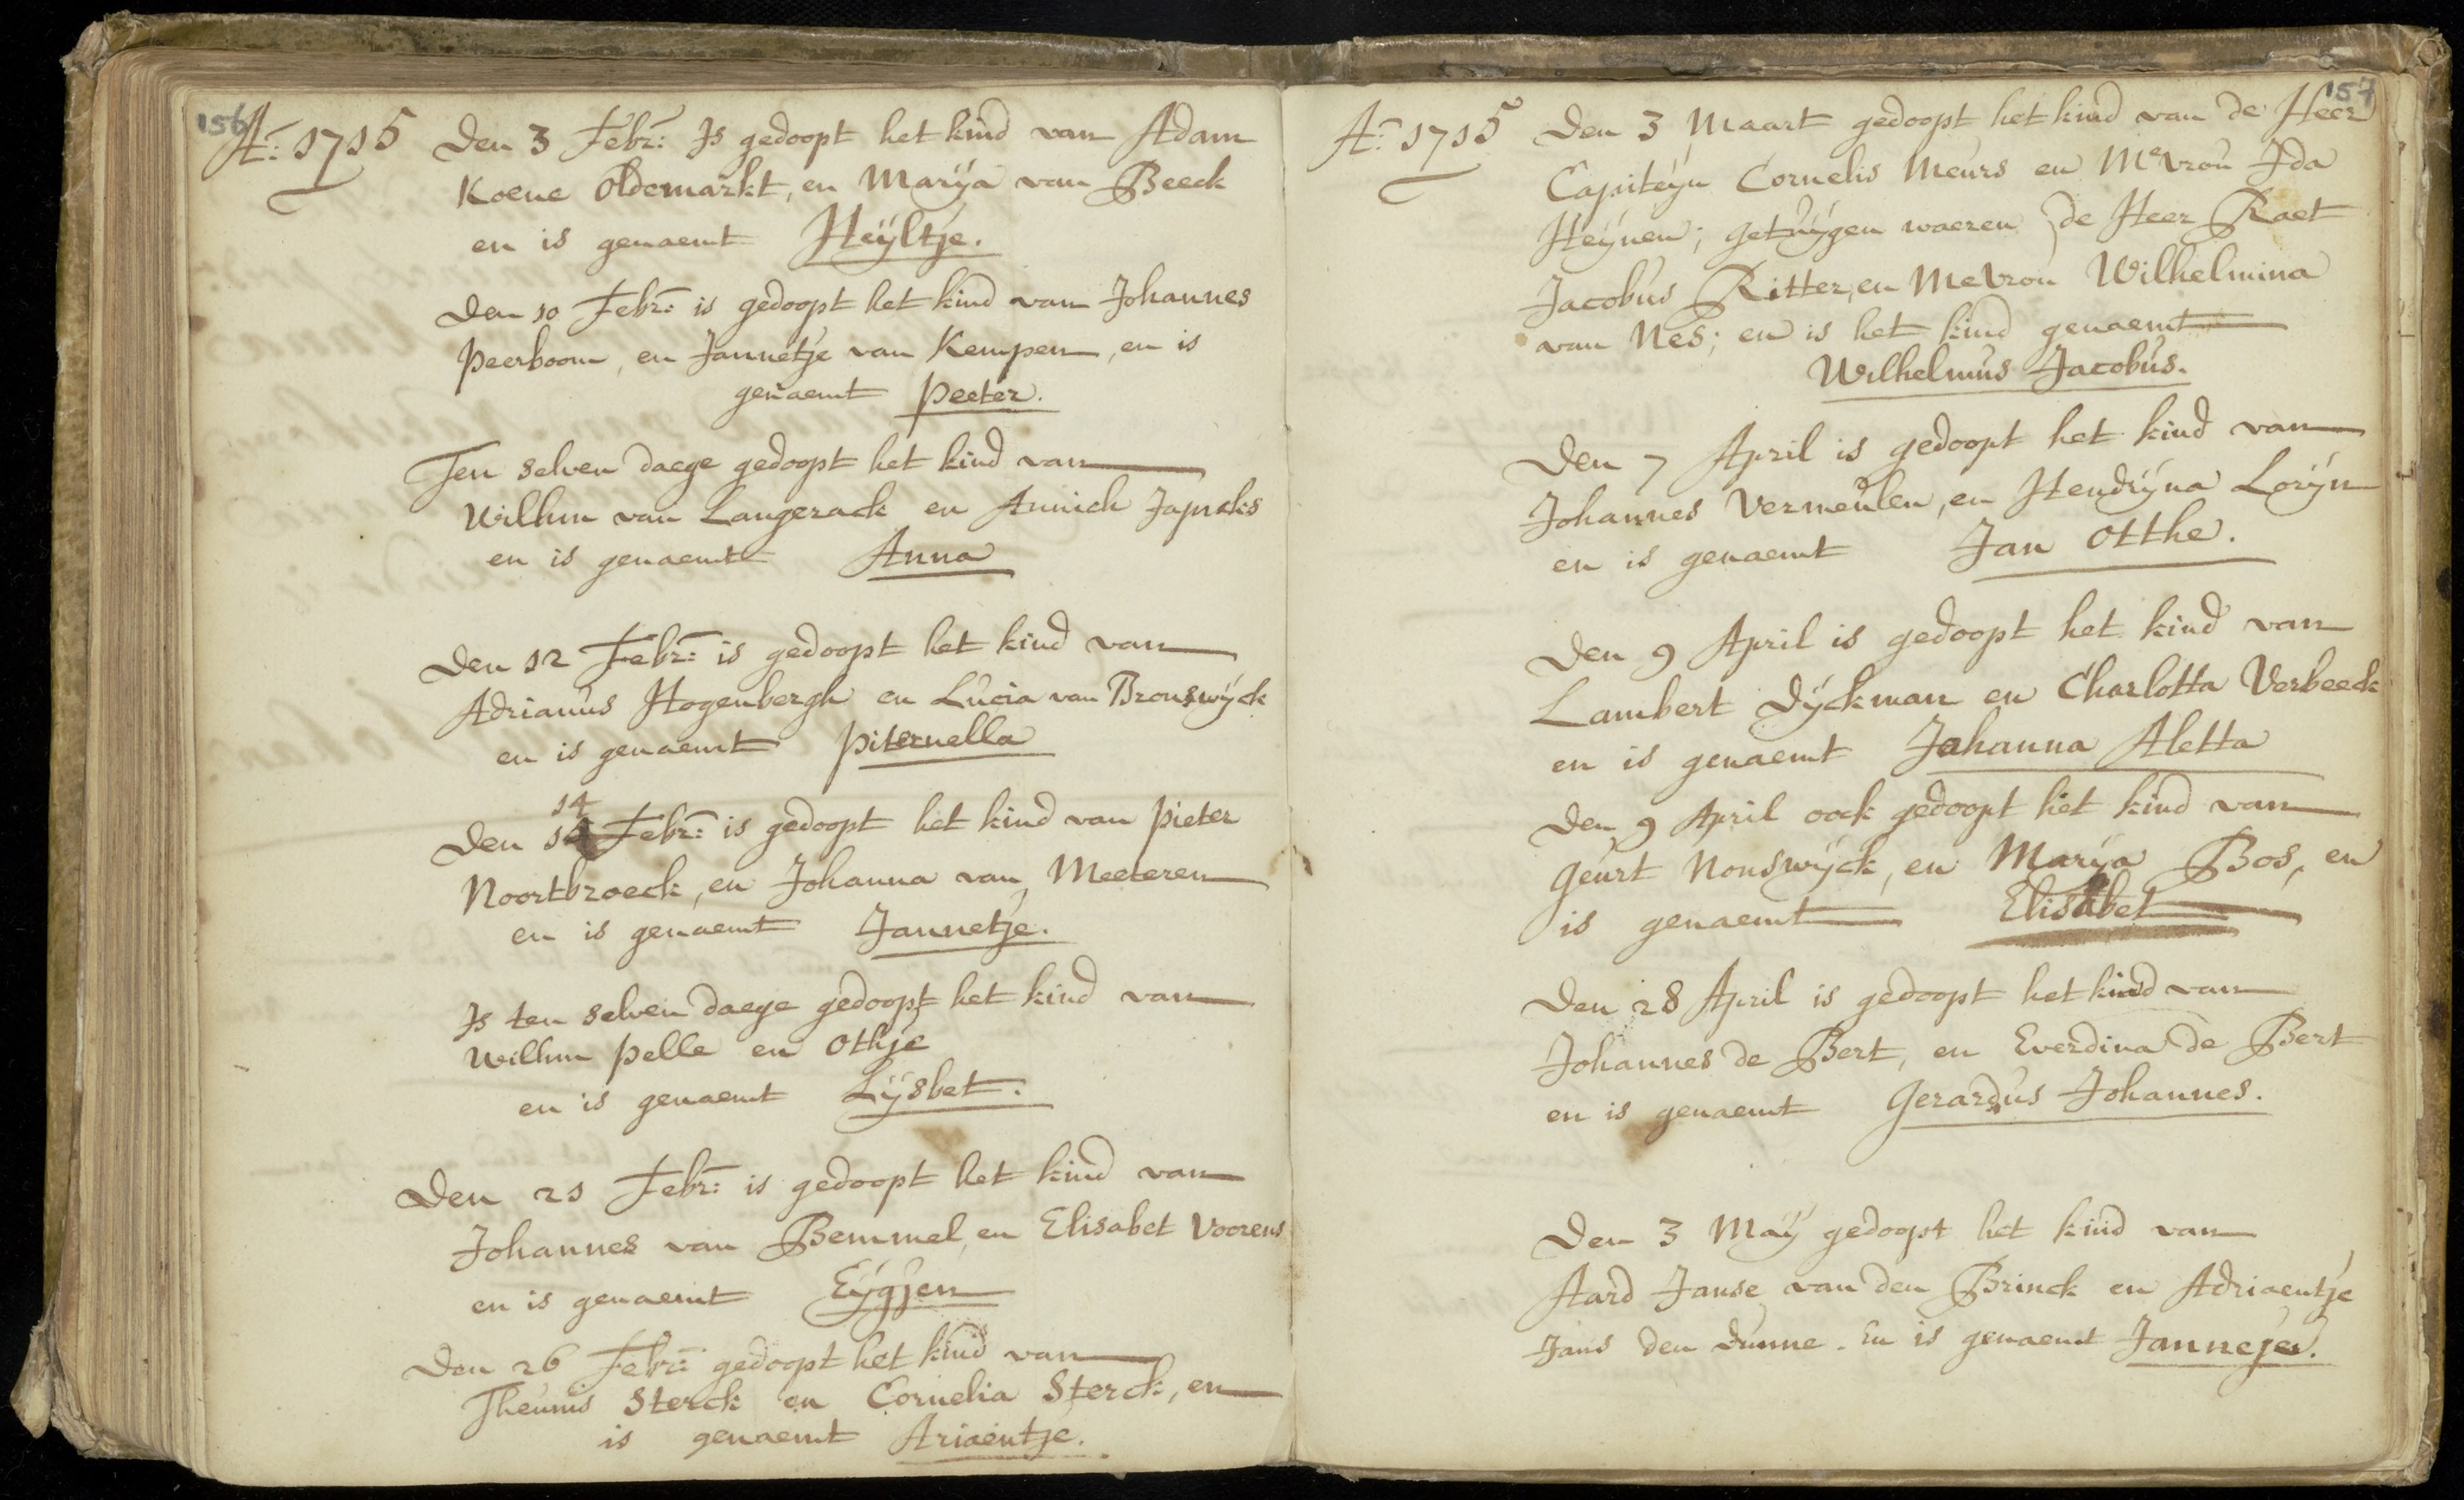 156
A:o 1715 Den 3 Febr: Is gedoopt het kind van Adam
Koene Oldemarkt, en Marÿa van Beeck
en is genaemt Heÿltje.
Den 10 Febr: is gedoopt het kind van Johannes
Peerboom, en Jannetje van Kempen, en is
genaemt Peeter.
Ten selven daege gedoopt het kind van
Willem van Langerack en Annich Japicks
en is genaemt Anna
Den 12 Febr: is gedoopt het kind van
Adrianus Hogenbergh en Lucia van Bronswÿck
en is genaemt Piternella
14
Den Febr: is gedoopt het kind van Pieter
Noortbroeck, en Johanna van Meeteren
en is genaemt Jannetje.
Is ten selven daege gedoopt het kind van
Willem Pelle en Othje
en is genaemt Lÿsbet.
Den 21 Febr: is gedoopt het kind van
Johannes van Bemmel, en Elisabet Voorens
en is genaemt Eÿgjen
Den 26 Febr: gedoopt het kind van
Theunis Sterck en Cornelia Sterck, en
is genaemt Ariaentje.
157
A:o 1715 Den 3 Maart gedoopt het kind van de Heer
Capiteÿn Cornelis Meurs en Mevrou Ida
Heÿnen; getuÿgen waeren de Heer Raet
Jacobus Ritter, en Mevrou Wilhelmina
van Nes; en is het kind genaemt
Wilhelmus Jacobus.
Den 7 April is gedoopt het kind van
Johannes Vermeulen, en Hendrÿna Lorÿn
en is genaemt Jan Otthe.
Den 9 April is gedoopt het kind van
Lambert Dÿckman en Charlotta Verbeeck
en is genaemt Johanna Aletta
Den 9 April ock gedoopt het kind van
Geurt Nonswÿck, en Marÿa Bos, en
is genaemt Elisabet
Den 28 April is gedoopt het kind van
Johannes de Bert, en Everdina de Bert
en is genaemt Gerardus Johannes.
Den 3 Maÿ gedoopt het kind van
Aard Janse van den Brinck en Adriaentje
Jans den Dunne. En is genaemt Jannejen.